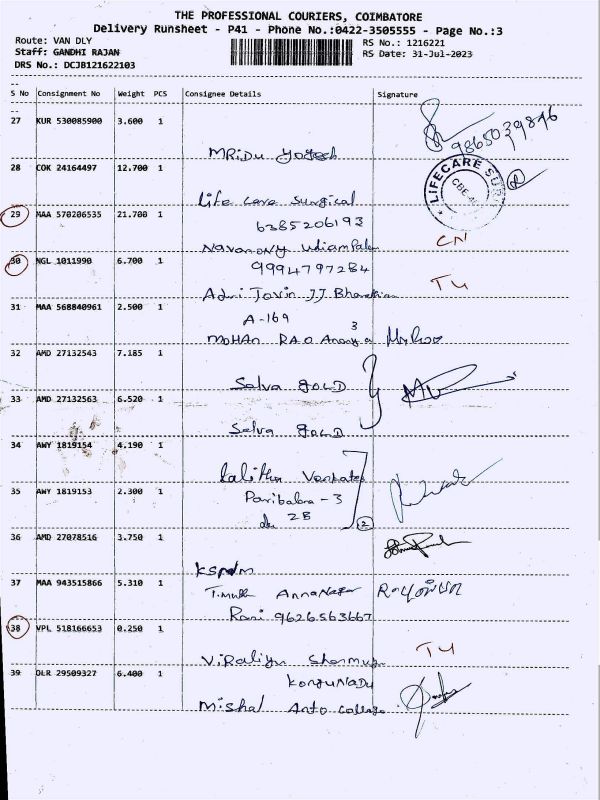 THE PROFESSIONAL COURIERS, COIMBATORE
Delivery Runsheet - P41 - Phone No.:0422-3505555 - Page No.:3
Route: VAN DLY
RS No.: 1216221
Staff: GANDHI RAJAN
RS Date: 31-Jul-2023
DRS No.: DCJB121622103
S No Consignment No Weight PCS Consignee Details Signature
27 KUR 530085900 3.600 1
9865039846
MRidu Yogesh
28 COK 24164497 12.700 1
LIFECARE SUR
CBE
Life care Surgical
29 MAA 570206535 21.700 1
6385206193
CN
Navamony
30 NGL 1011990 6.700 1
9994797284
TU
Adwi Jovin JJ
31 MAA 568840961 2.500 1
A-169
3
MOHAN RAO Ananya
32 AMD 27132543 7.185 1
Selva GOLD
33 AMD 27132563 6.520 1
Selva GOLD
34 AWY 1819154 4.190 1
Lalitha Venkates
35 AWY 1819153 2.300 1
Paribalan - 3
2B
2
36 AMD 27078516 3.750 1
37 MAA 943515866 5.310 1
AnnaNagar
Rani 9626563667
38 VPL 518166653 0.250 1
TU
39 DLR 29509327 6.400 1
KonguNadu
Mishal Anto College